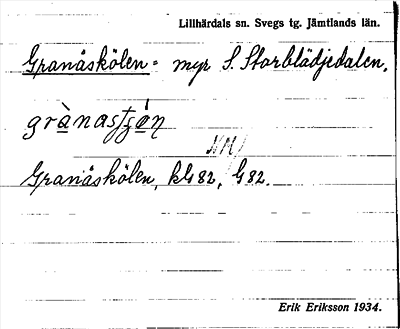 Lillhärdals sn. Svegs tg. Jämtlands län.
Granåskölen = myr S. Storblädjedalen.
NM
Granåskölen, kG 82, G 82.
Erik Eriksson 1934.